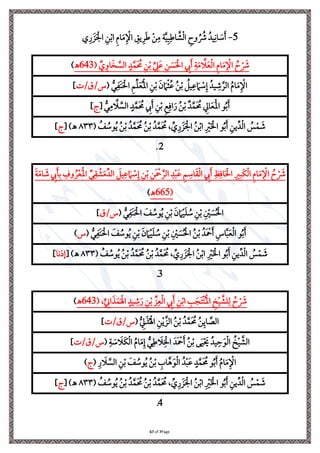 5- أَسَانِيدُ شُرُوحِ الشَّاطِبِيَّةِ مِنْ طَرِيقِ الْإِمَامِ ابْنِ الْجَزَرِي
شَرْحُ الْإِمَامِ الْعَلَّامَةِ أَبِي الْحَسَنِ عَلِيِّ بْنِ مُحَمَّدٍ السَّخَاوِيِّ (643هـ)
الْإِمَامُ الرَّشِيدُ إِسْمَاعِيلُ بْنُ عُثْمَانَ بْنِ الْمُعَلِّمِ الْحَنَفِيُّ (س/ق/ت)
أَبُو الْمَعَالِي مُحَمَّدُ بْنُ رَافِعِ بْنِ أَبِي مُحَمَّدٍ السَّلَّامِيُّ [ج]
شَمْسُ الدِّينِ أَبُو الْخَيْرِ ابْنُ الْجَزَرِيِّ، مُحَمَّدُ بْنُ مُحَمَّدُ بْنُ يُوسُفُ (٨٣٣ هـ) [ج]
2.
شَرْحُ الْإِمَامِ الْكَبِيرِ الْحَافِظِ أَبِي الْقَاسِمِ عَبْدِ الرَّحْمَنِ بْنِ إِسْمَاعِيلَ الدِّمَشْقِيِّ الْمَعْرُوفِ بِأَبِي شَامَةَ
(665هـ)
الْحُسَيْنِ بْنِ سُلَيْمَانَ بْنِ يُوسُفَ الْحَنَفِيُّ (س/ق)
أَبُو الْعَبَّاسِ أَحْمَدُ بْنُ الْحُسَيْنِ بْنِ سُلَيْمَانَ بْنِ يُوسُفَ الْحَنَفِيُّ (س)
شَمْسُ الدِّينِ أَبُو الْخَيْرِ ابْنُ الْجَزَرِيِّ، مُحَمَّدُ بْنُ مُحَمَّدُ بْنُ يُوسُفُ (٨٣٣ هـ)
3.
شَرْحٌ لِلشَّيْخِ الْمُنْتَجَبِ ابْنِ أَبِي الْعِزِّ بْنِ رَشِيدٍ الْهَمَذَانِيِّ، (643هـ)
الصَّائِنُ مُحَمَّدُ بْنُ الزَّيْنِ الْهُذَلِيُّ (س/ق/ت)
الشَّيْخُ الْوَحِيدُ يَحْيَى بْنُ أَحْمَدَ الْخِلَاطِيُّ إِمَامُ الْكَلَّاسَةِ (س/ق/ت)
الْإِمَامُ أَبُو مُحَمَّدٍ عَبْدُ الْوَهَّابِ بْنُ يُوسُفَ بْنِ السَّلَّارِ (ج)
شَمْسُ الدِّينِ أَبُو الْخَيْرِ ابْنُ الْجَزَرِيِّ، مُحَمَّدُ بْنُ مُحَمَّدُ بْنُ يُوسُفُ (٨٣٣ هـ) [ج]
4.